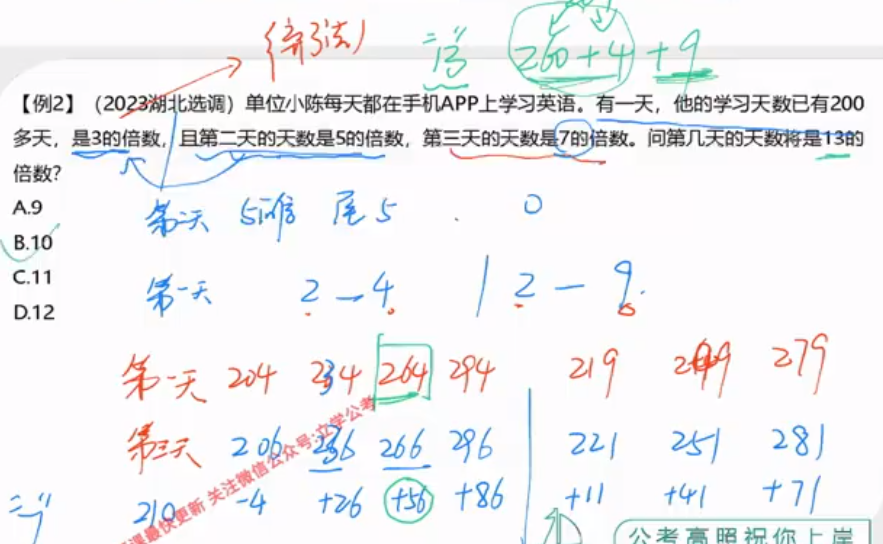 (奔驰法) 三 13 260+4 +9
【例2】（2023湖北选调）单位小陈每天都在手机APP上学习英语。有一天，他的学习天数已有200
多天，是3的倍数，且第二天的天数是5的倍数，第三天的天数是7的倍数。问第几天的天数将是13的
倍数?
A.9
B.10
C.11
D.12
第二天 5的倍 尾5 . 0
第一天 2—4 | 2—9
第一天 204 234 264 294 219 249 279
第三天 206 236 266 296 221 251 281
210 -4 +26 +56 +86 +11 +41 +71
课最快更新 关注微信公众号:立学公考
公考高照祝你上岸